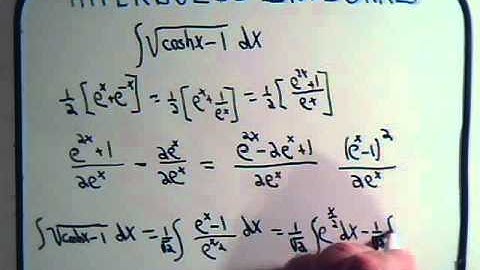 ∫√(coshx-1) dx
½[eˣ+e⁻ˣ] = ½[eˣ+1/eˣ] = ½[(e²ˣ+1)/eˣ]
(e²ˣ+1)/2eˣ - 2eˣ/2eˣ = (e²ˣ-2eˣ+1)/2eˣ (eˣ-1)²/2eˣ
∫√(coshx-1) dx = 1/√2 ∫ (eˣ-1)/e^(x/2) dx = 1/√2 ∫e^(x/2) dx - 1/√2 ∫